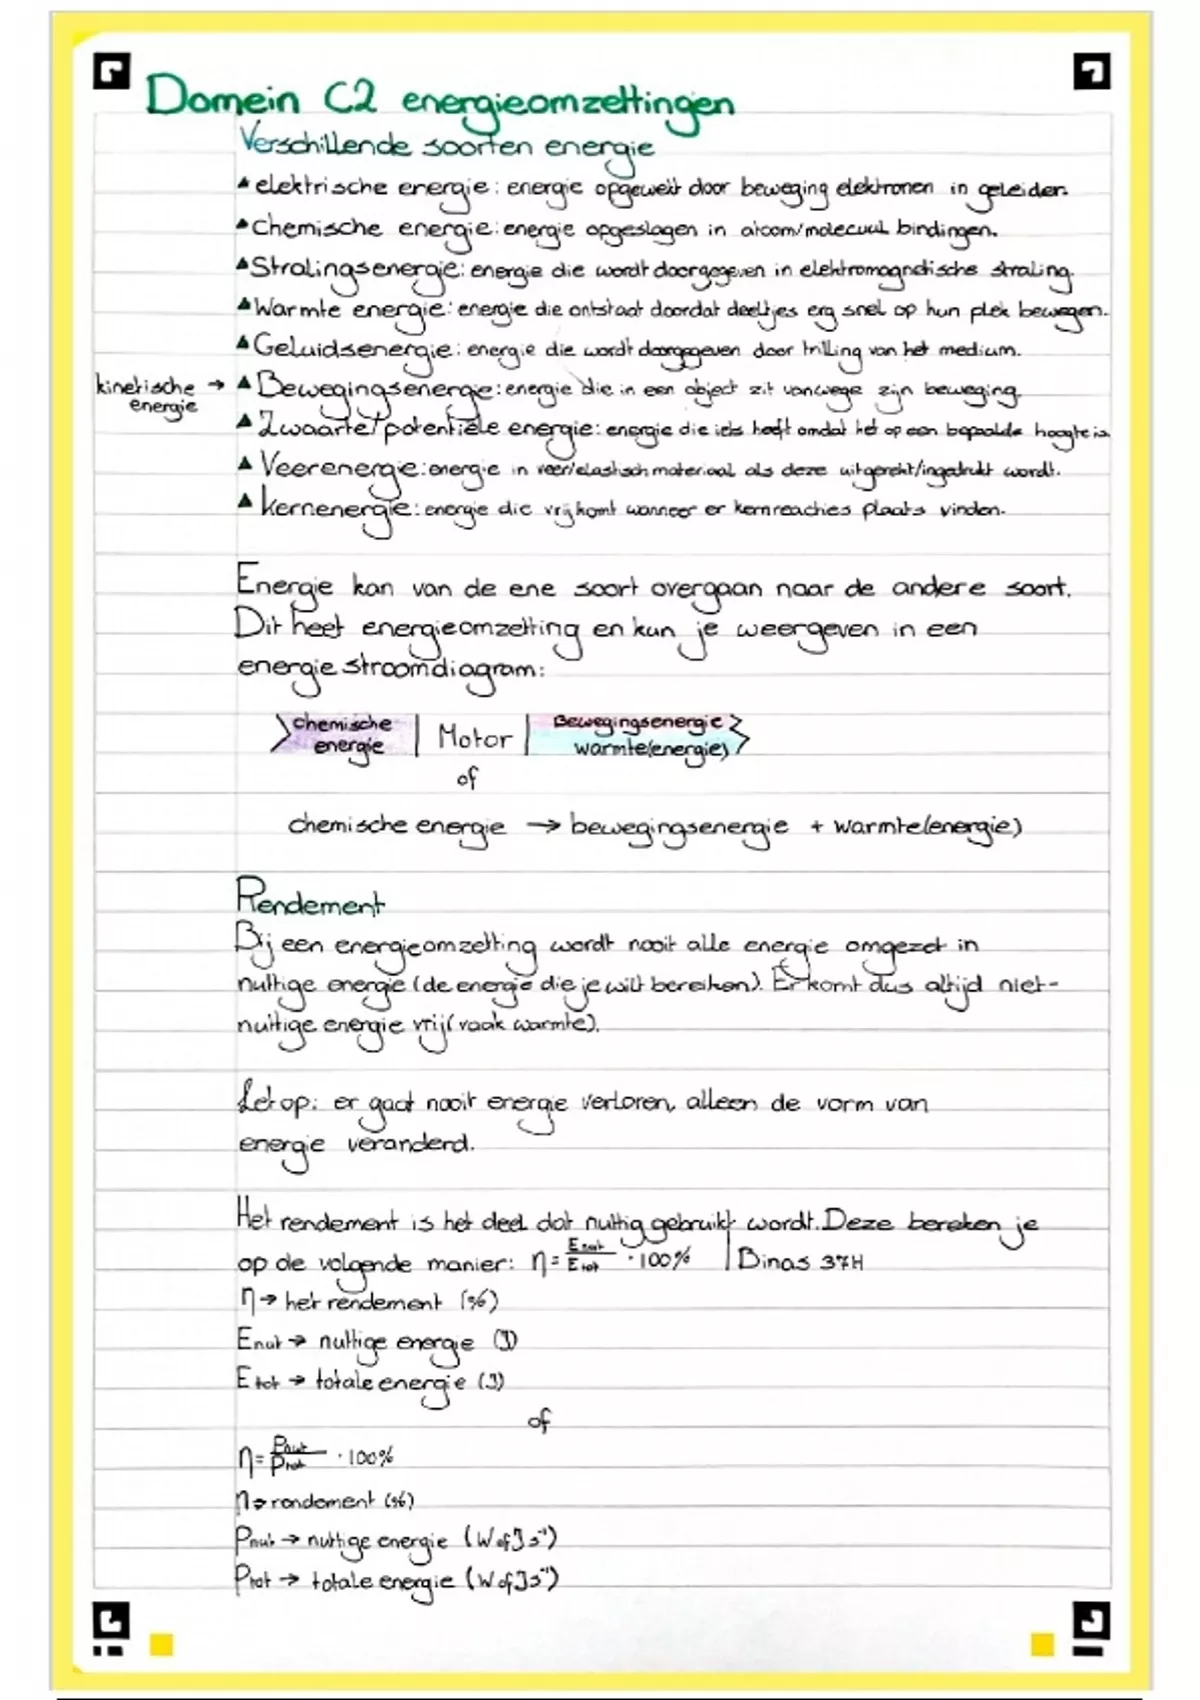 Domein C2 energieomzettingen
Verschillende soorten energie
▲ elektrische energie: energie opgewekt door beweging elektronen in geleider.
▲ Chemische energie: energie opgeslagen in atoom/molecuul bindingen.
▲ Stralingsenergie: energie die wordt doorgegeven in elektromagnetische straling.
▲ Warmte energie: energie die ontstaat doordat deeltjes erg snel op hun plek bewegen.
▲ Geluidsenergie: energie die wordt doorgegeven door trilling van het medium.
kinetische energie → ▲ Bewegingsenergie: energie die in een object zit vanwege zijn beweging.
▲ Zwaarte/potentiële energie: energie die iets heeft omdat het op een bepaalde hoogte is
▲ Veerenergie: energie in veer/elastisch materiaal als deze uitgerekt/ingedrukt wordt.
▲ Kernenergie: energie die vrijkomt wanneer er kernreacties plaats vinden.
Energie kan van de ene soort overgaan naar de andere soort.
Dit heet energieomzetting en kun je weergeven in een
energiestroomdiagram:
chemische energie | Motor | Bewegingsenergie warmte(energie)
of
chemische energie → bewegingsenergie + warmte(energie)
Rendement
Bij een energieomzetting wordt nooit alle energie omgezet in
nuttige energie (de energie die je wilt bereiken). Er komt dus altijd niet-
nuttige energie vrij (vaak warmte).
Let op: er gaat nooit energie verloren, alleen de vorm van
energie veranderd.
Het rendement is het deel dat nuttig gebruikt wordt. Deze bereken je
op de volgende manier: η = Enut/Etot · 100% | Binas 37H
η → het rendement (%)
Enut → nuttige energie (J)
Etot → totale energie (J)
of
η = Pnut/Ptot · 100%
η → rendement (%)
Pnut → nuttige energie (W of Js⁻¹)
Ptot → totale energie (W of Js⁻¹)